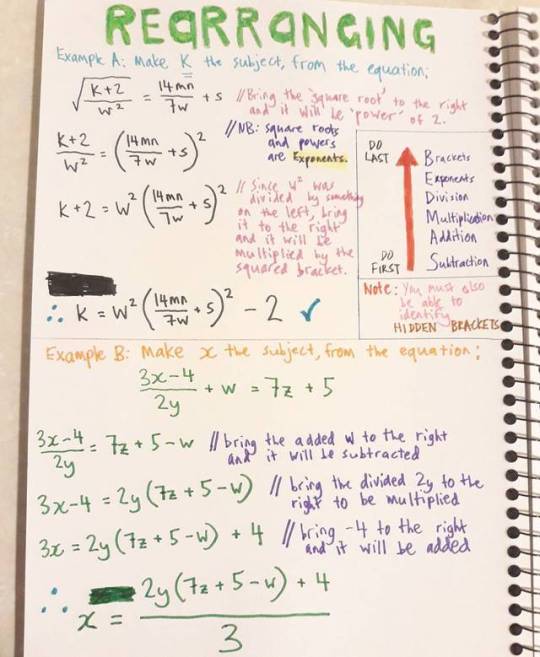 REARRANGING
Example A: Make K the subject, from the equation;
√((k+2)/w²) = 14mn/7w + s // Bring the 'square root' to the right
and it will be 'power' of 2.
(k+2)/w² = (14mn/7w + s)² // NB: square roots
and powers
are Exponents.
k+2 = w² (14mn/7w + s)² // Since w² was
divided by something
on the left, bring
it to the right
and it will be
multiplied by the
squared bracket.
∴ k = w² (14mn/7w + s)² - 2 ✓
DO LAST
Brackets
Exponents
Division
Multiplication
Addition
DO FIRST
Subtraction
Note: You must also
be able to
identify
HIDDEN BRACKETS
Example B: Make x the subject, from the equation;
(3x-4)/2y + w = 7z + 5
(3x-4)/2y = 7z + 5 - w // bring the added w to the right
and it will be subtracted
3x-4 = 2y(7z + 5 - w) // bring the divided 2y to the
right to be multiplied
3x = 2y(7z + 5 - w) + 4 // bring -4 to the right
and it will be added
∴ x = (2y(7z + 5 - w) + 4)/3